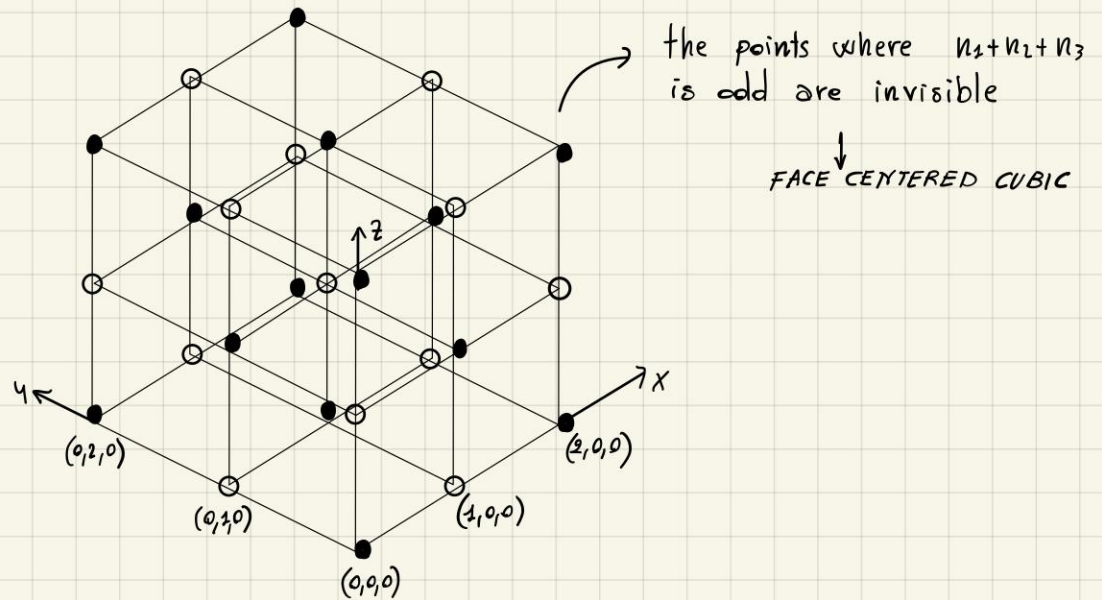 the points where n₁+n₂+n₃
is odd are invisible
↓
FACE CENTERED CUBIC
z
y
x
(0,2,0)
(2,0,0)
(0,1,0)
(1,0,0)
(0,0,0)